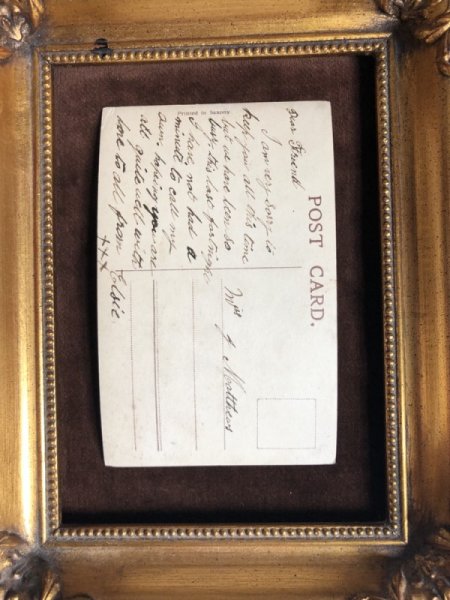 POST CARD.
Dear Friend
I am very Sorry to
keep you all this time
but we have been so
busy this last fortnight
I have not had a
minute to call my
own, hoping you are
all quite well with
love to all from Elsie.
xxx
J Matthews
Printed in Saxony